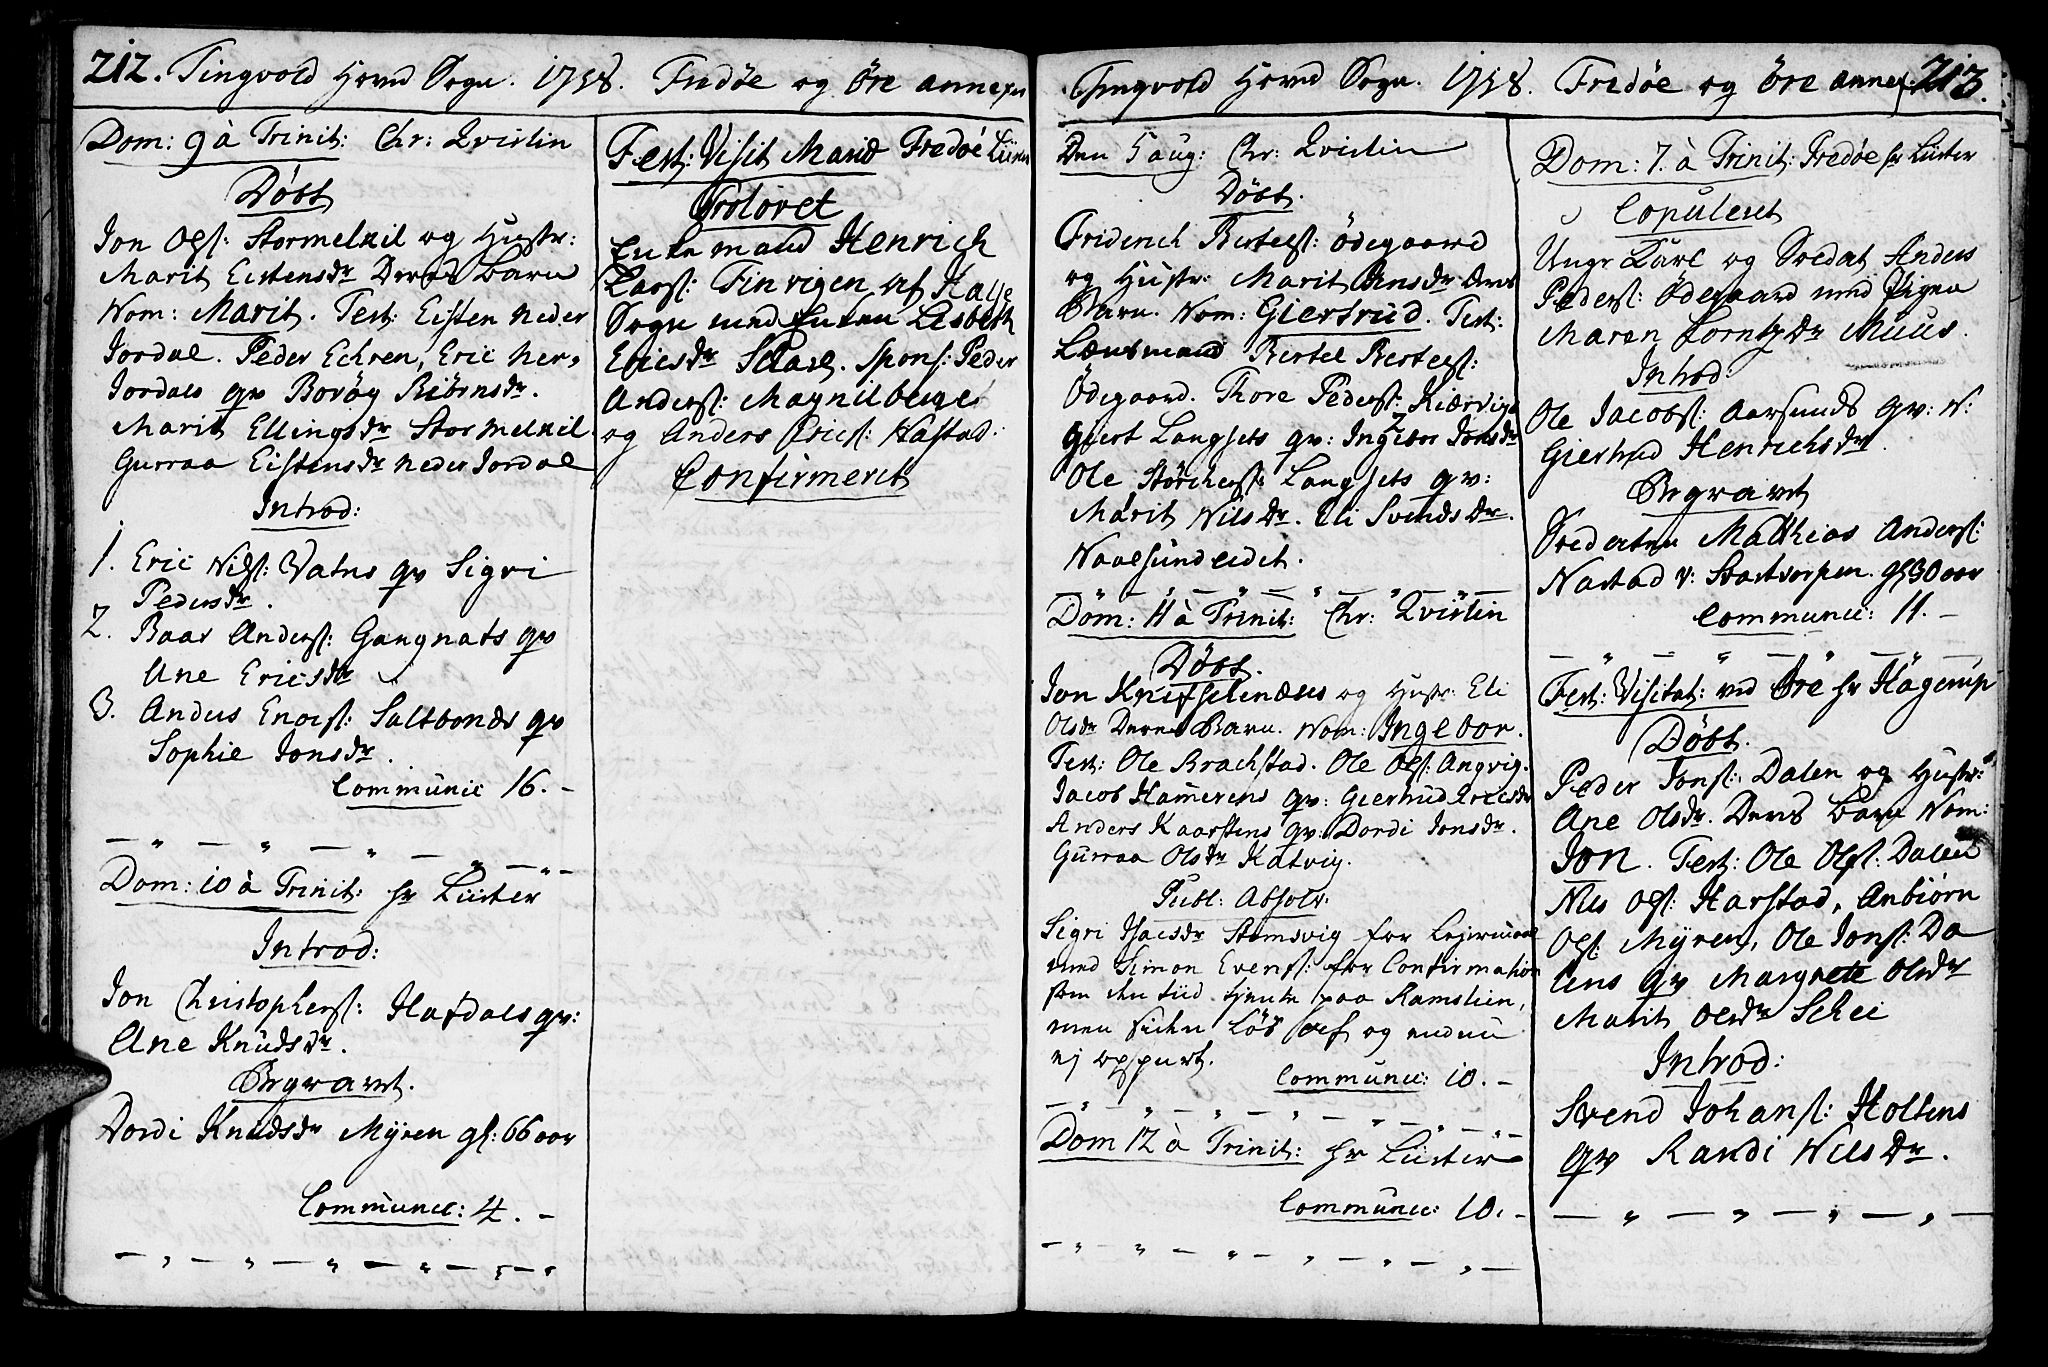 212. Tingvold Hoved Sogn. 1758. Fredøe og Øre annexer
Dom: 9 à Trinit: Chr: Qvistin
Døbt
Jon Ols: Stormelkil og Hustr:
Marit Eistensdr Deres Barn
Nom: Marit. Test: Eisten neder
Jordal. Peder Echren, Eric Ner,
Jordals qv Boröy Biörnsdr.
Marit Ellingsdr Stormelkil
Gurraa Eistensdr neder Jordal
Introd:
1. Eric Nils: Vatns qv Sigri
Pedersdr.
2. Baar Anders: Gangnats qv
Ane Ericsdr
3. Anders Enoes: Saltbones qv
Sophie Jonsdr.
Communic 16.-
Dom: 10 à Trinit: hr Lüster
Introd:
Jon Christophers: Hafdals qv:
Ane Knudsdr.
Begravet.
Dordi Knudsdr Myren gl: 66 aar
Communic: 4.-
Fest: Visit Mariæ Fredøe
Trolovet
Enkemand Henrich
Lars: Finvigen af
Sogn med Enken Lisbeth
Ericsdr. Spons: Peder
Anders: Magnilberge
og Anders Erics: Hastad.
Confirmeret
Tingvold Hoved Sogn. 1758. Fredøe og Øre annex: 213.
Den 5 aug: Chr: Qvistin
Døbt.
Friderich Bertels: Ödegaard
og Hustr: Marit Jensdr deres
Barn. Nom: Giertrud. Test:
Lænsmand Bertel Bertels:
Ödegaard. Thore Peders: Kiærvig
Giert Langsets qv: Ingebor Jonsdr
Ole Störchers: Langsets qv:
Marit Nilsdr. Eli Svendsdr.
Naalsundeidet.
Dom: 11 à Trinit: Chr: Qvistin
Døbt.
Jon Knefselenæus og Hustr: Eli
Olsdr Deres Barn. Nom: Ingebor.
Test: Ole Brachstad. Ole Ols: Angvig.
Jacob Hamerens qv: Giertrud Ericsdr
Anders Kaarstens qv: Dordi Jonsdr.
Gurraa Olsdr Katvig.
Publ: Absolv:
Sigri Isacsdr Stomsvig for Lejermaal
med Simon Evens: for Confirmation
som den tiid tjente paa Ramslien,
men siden löb af og endnu
ej opspurt.
Communic: 10.-
Dom 12 à Trinit: hr Lüster
Communic: 10.-
Dom: 7. à Trinit: Fredøe hr Lüster
Copuleret
Unge Karl og Soldat Anders
Peders: Ödegaard med Pigen
Maren Lorntzdr Muus.
Introd:
Ole Jacobs: Aarsunds qv: N:
Giertrud Henrichsdr.
Begravet
Soldaten Matthias Anders:
Nastad v: Stortsorpen. gl 30 aar
Communic: 11.-
Fest: Visitat: ved Øre hr Hagerup
Døbt.
Peder Jons: Dalen og Hustr:
Ane Olsdr. Deres Barn Nom:
Jon. Test: Ole Ols: Dalen
Nils Ols: Harstad, Anbiörn
Ols: Myren, Ole Jons: Da
lens qv Margrete Olsdr
Marit Olsdr Schei
Introd:
Svend Johans: Holtens
qv Randi Nilsdr.